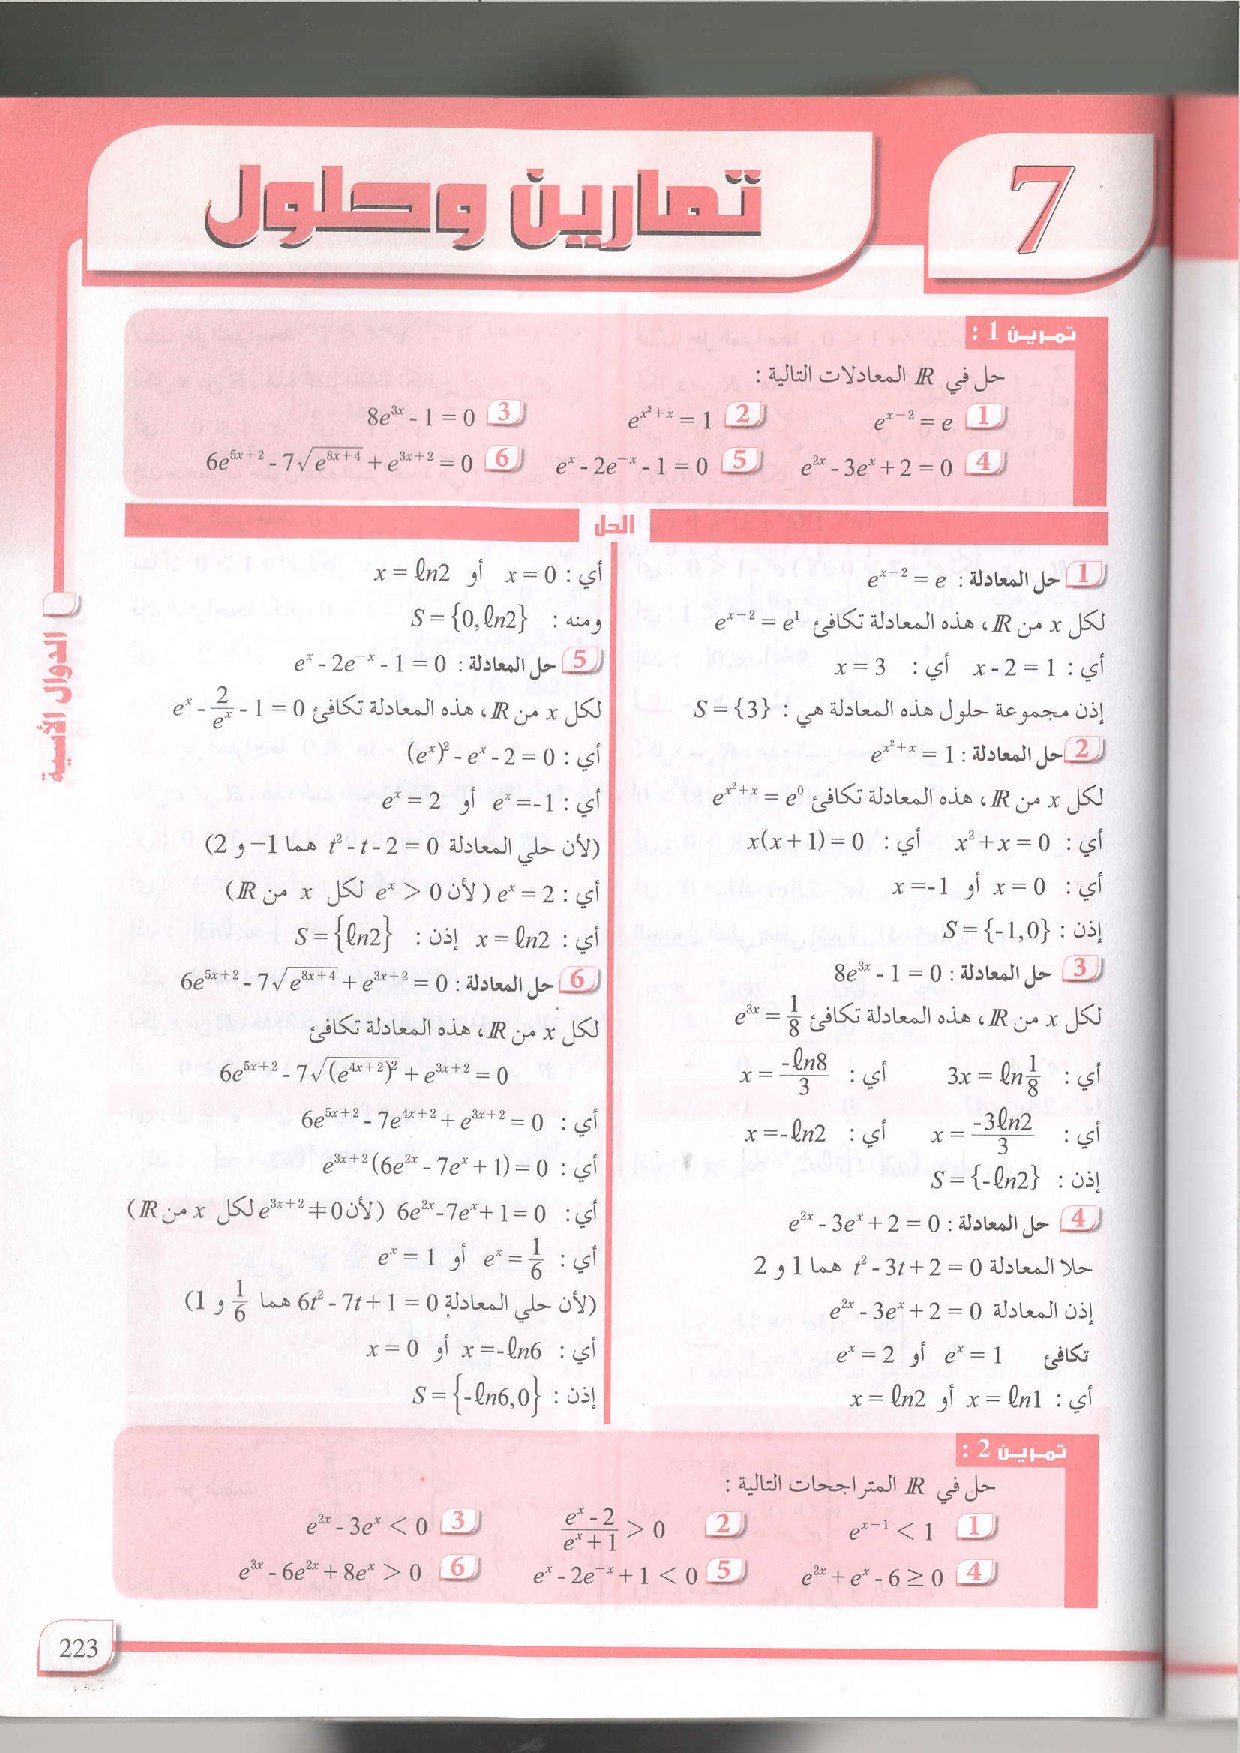 7
تمارين وحلول
تمرين 1 :
حل في IR المعادلات التالية :
1 e^{x-2} = e 2 e^{x²+x} = 1 3 8e^{3x} - 1 = 0
4 e^{2x} - 3e^x + 2 = 0 5 e^x - 2e^{-x} - 1 = 0 6 6e^{5x+2} - 7√(e^{8x+4}) + e^{3x+2} = 0
الحل
1 حل المعادلة : e^{x-2} = e
لكل x من IR، هذه المعادلة تكافئ e^{x-2} = e^1
أي : x - 2 = 1 أي : x = 3
إذن مجموعة حلول هذه المعادلة هي : S = {3}
2 حل المعادلة : e^{x²+x} = 1
لكل x من IR، هذه المعادلة تكافئ e^{x²+x} = e^0
أي : x² + x = 0 أي : x(x + 1) = 0
أي : x = 0 أو x = -1
إذن : S = {-1,0}
3 حل المعادلة : 8e^{3x} - 1 = 0
لكل x من IR، هذه المعادلة تكافئ e^{3x} = 1/8
أي : 3x = ℓn 1/8 أي : x = -ℓn8/3
أي : x = -3ℓn2/3 أي : x = -ℓn2
إذن : S = {-ℓn2}
4 حل المعادلة : e^{2x} - 3e^x + 2 = 0
حلا المعادلة t² - 3t + 2 = 0 هما 1 و 2
إذن المعادلة e^{2x} - 3e^x + 2 = 0
تكافئ e^x = 1 أو e^x = 2
أي : x = ℓn1 أو x = ℓn2
أي : x = 0 أو x = ℓn2
ومنه : S = {0, ℓn2}
5 حل المعادلة : e^x - 2e^{-x} - 1 = 0
لكل x من IR، هذه المعادلة تكافئ e^x - 2/e^x - 1 = 0
أي : (e^x)² - e^x - 2 = 0
أي : e^x = -1 أو e^x = 2
(لأن حلي المعادلة t² - t - 2 = 0 هما -1 و 2)
أي : e^x = 2 (لأن e^x > 0 لكل x من IR)
أي : x = ℓn2 إذن : S = {ℓn2}
6 حل المعادلة : 6e^{5x+2} - 7√(e^{8x+4}) + e^{3x+2} = 0
لكل x من IR، هذه المعادلة تكافئ
6e^{5x+2} - 7√((e^{4x+2})²) + e^{3x+2} = 0
أي : 6e^{5x+2} - 7e^{4x+2} + e^{3x+2} = 0
أي : e^{3x+2}(6e^{2x} - 7e^x + 1) = 0
أي : 6e^{2x} - 7e^x + 1 = 0 (لأن e^{3x+2} ≠ 0 لكل x من IR)
أي : e^x = 1/6 أو e^x = 1
(لأن حلي المعادلة 6t² - 7t + 1 = 0 هما 1/6 و 1)
أي : x = -ℓn6 أو x = 0
إذن : S = {-ℓn6,0}
تمرين 2 :
حل في IR المتراجحات التالية :
1 e^{x-1} < 1 2 (e^x - 2)/(e^x + 1) > 0 3 e^{2x} - 3e^x < 0
4 e^{2x} + e^x - 6 ≥ 0 5 e^x - 2e^{-x} + 1 < 0 6 e^{3x} - 6e^{2x} + 8e^x > 0
الدوال الأسية
223